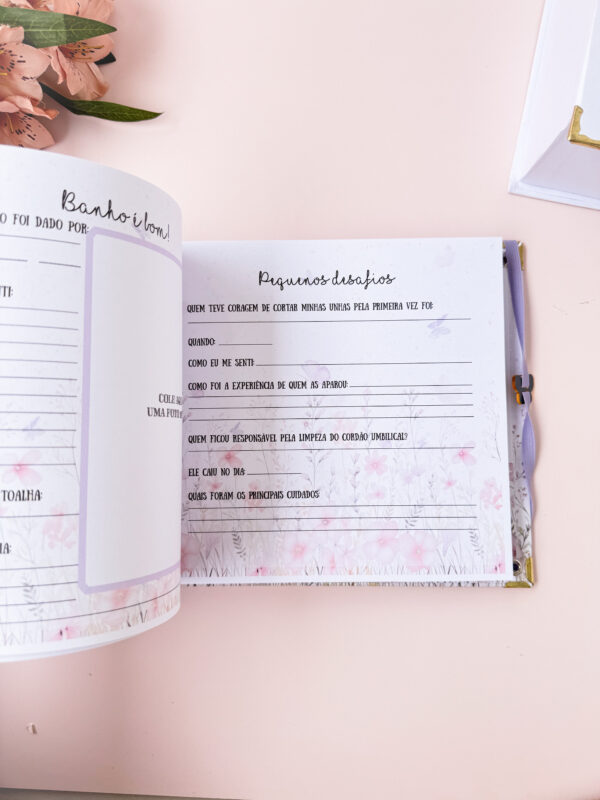 Banho é bom!
O FOI DADO POR:
TI:
COLE
UMA FOTO
TOALHA:
A:
Pequenos desafios
QUEM TEVE CORAGEM DE CORTAR MINHAS UNHAS PELA PRIMEIRA VEZ FOI:
QUANDO:
COMO EU ME SENTI:
COMO FOI A EXPERIÊNCIA DE QUEM AS APAROU:
QUEM FICOU RESPONSÁVEL PELA LIMPEZA DO CORDÃO UMBILICAL?
ELE CAIU NO DIA:
QUAIS FORAM OS PRINCIPAIS CUIDADOS: